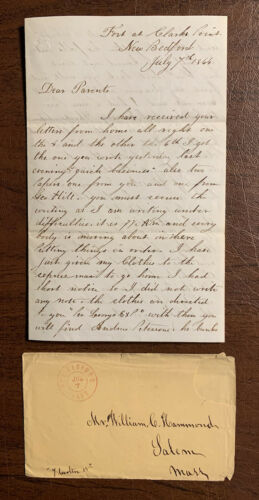 Fort at Clarks Point
New Bedford
July 7th 1864
Dear Parents
I have received your
letters from home all right one
the 5 and the other the 6th I got
the one you wrote yesterday last
evening "quick business" also two
papers one from you and one from
Geo Hill. you must excuse the
writing as I am writing under
difficulties. it is
body is moving about in here
getting things in order. I have
just given my Clothes to the
express man to go home I had
short notice so I did not write
any note. the clothes are directed
to you with them you
will find Andrew
JUL
7
Mr. William C. Hammond
Salem
Mass